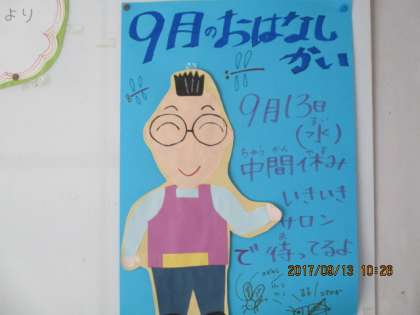 より
9月のおはなし
かい
9月13日
(水)
中間休み
いきいき
サロン
で待ってるよ
2017/09/13 10:28